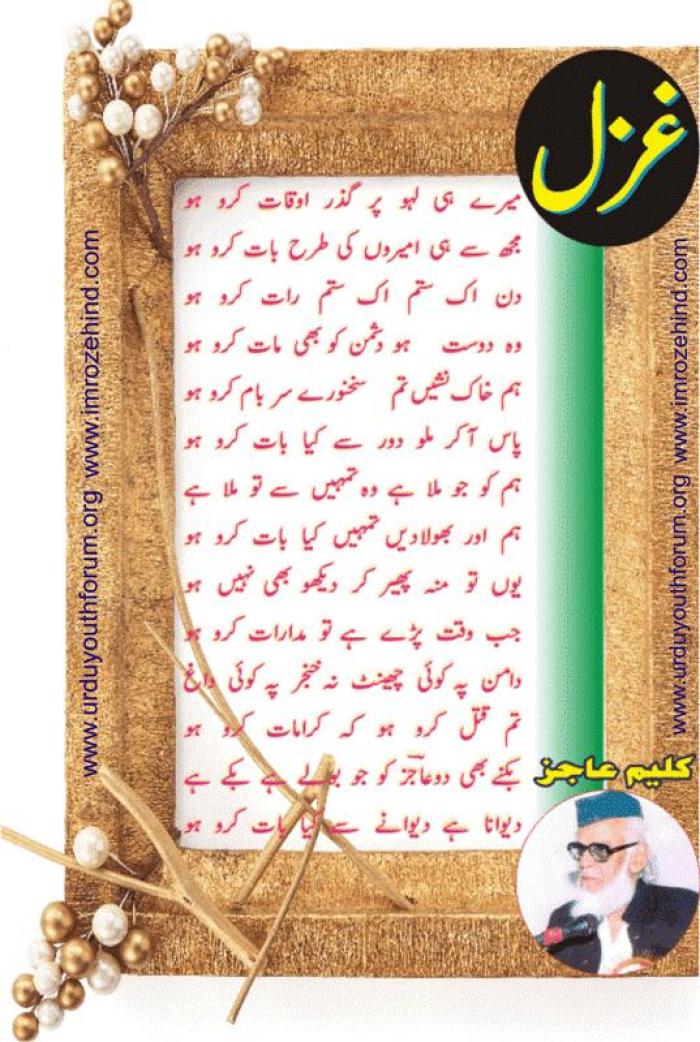 غزل
میرے ہی لہو پر گذر اوقات کرو ہو
مجھ سے ہی امیروں کی طرح بات کرو ہو
دن اک ستم اک ستم رات کرو ہو
وہ دوست ہو دشمن کو بھی مات کرو ہو
ہم خاک نشیں تم سخنورے سر بام کرو ہو
پاس آکر ملو دور سے کیا بات کرو ہو
ہم کو جو ملا ہے وہ تمہیں سے تو ملا ہے
ہم اور بھولادیں تمہیں کیا بات کرو ہو
یوں تو منہ پھیر کر دیکھو بھی نہیں ہو
جب وقت پڑے ہے تو مدارات کرو ہو
دامن پہ کوئی چھینٹ نہ خنجر پہ کوئی داغ
تم قتل کرو ہو کہ کرامات کرو ہو
بکنے بھی دو عاجزؔ کو جو بولے ہے بکے ہے
دیوانا ہے دیوانے سے کیا بات کرو ہو
کلیم عاجز
www.urduyouthforum.org www.imrozehind.com
www.urduyouthforum.org www.imrozehind.com